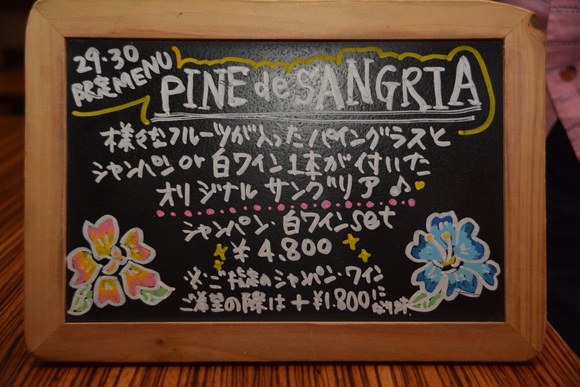 29.30
限定MENU
PINE de SANGRIA
様々なフルーツが入ったパイングラスと
シャンパン or 白ワイン1本が付いた
オリジナルサングリア♪
シャンパン・白ワインset
¥4.800
※ご指定のシャンパン・ワイン
ご希望の際は+¥1.800になります